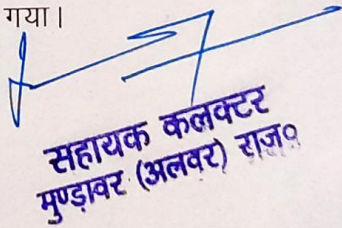 गया।
सहायक कलक्टर
मुण्डावर (अलवर) राज०